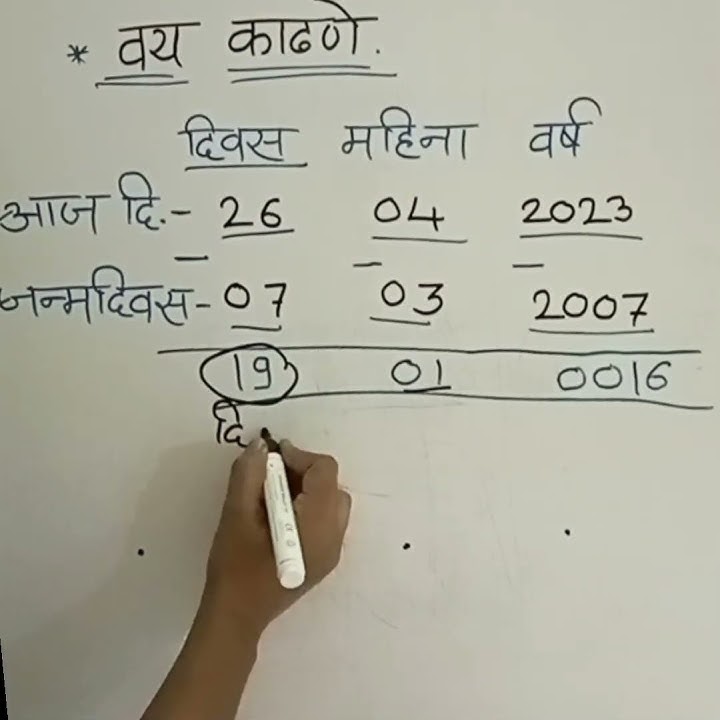 * वय काढणे.
दिवस महिना वर्ष
आज दि.- 26 04 2023
- - -
जन्मदिवस- 07 03 2007
19 01 0016
दि